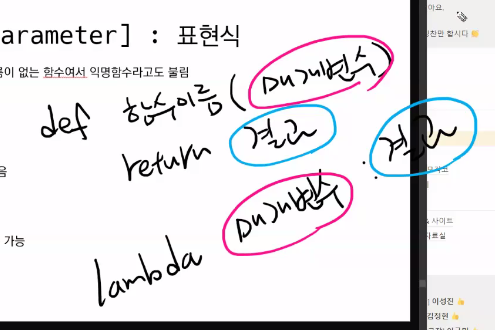 arameter] : 표현식
름이 없는 함수여서 익명함수라고도 불림
def 함수이름(매개변수)
return 결과
음
lambda 매개변수 : 결과
가능
아요.
강찬만 합시다
& 사이트
자료실
이성진
김정현